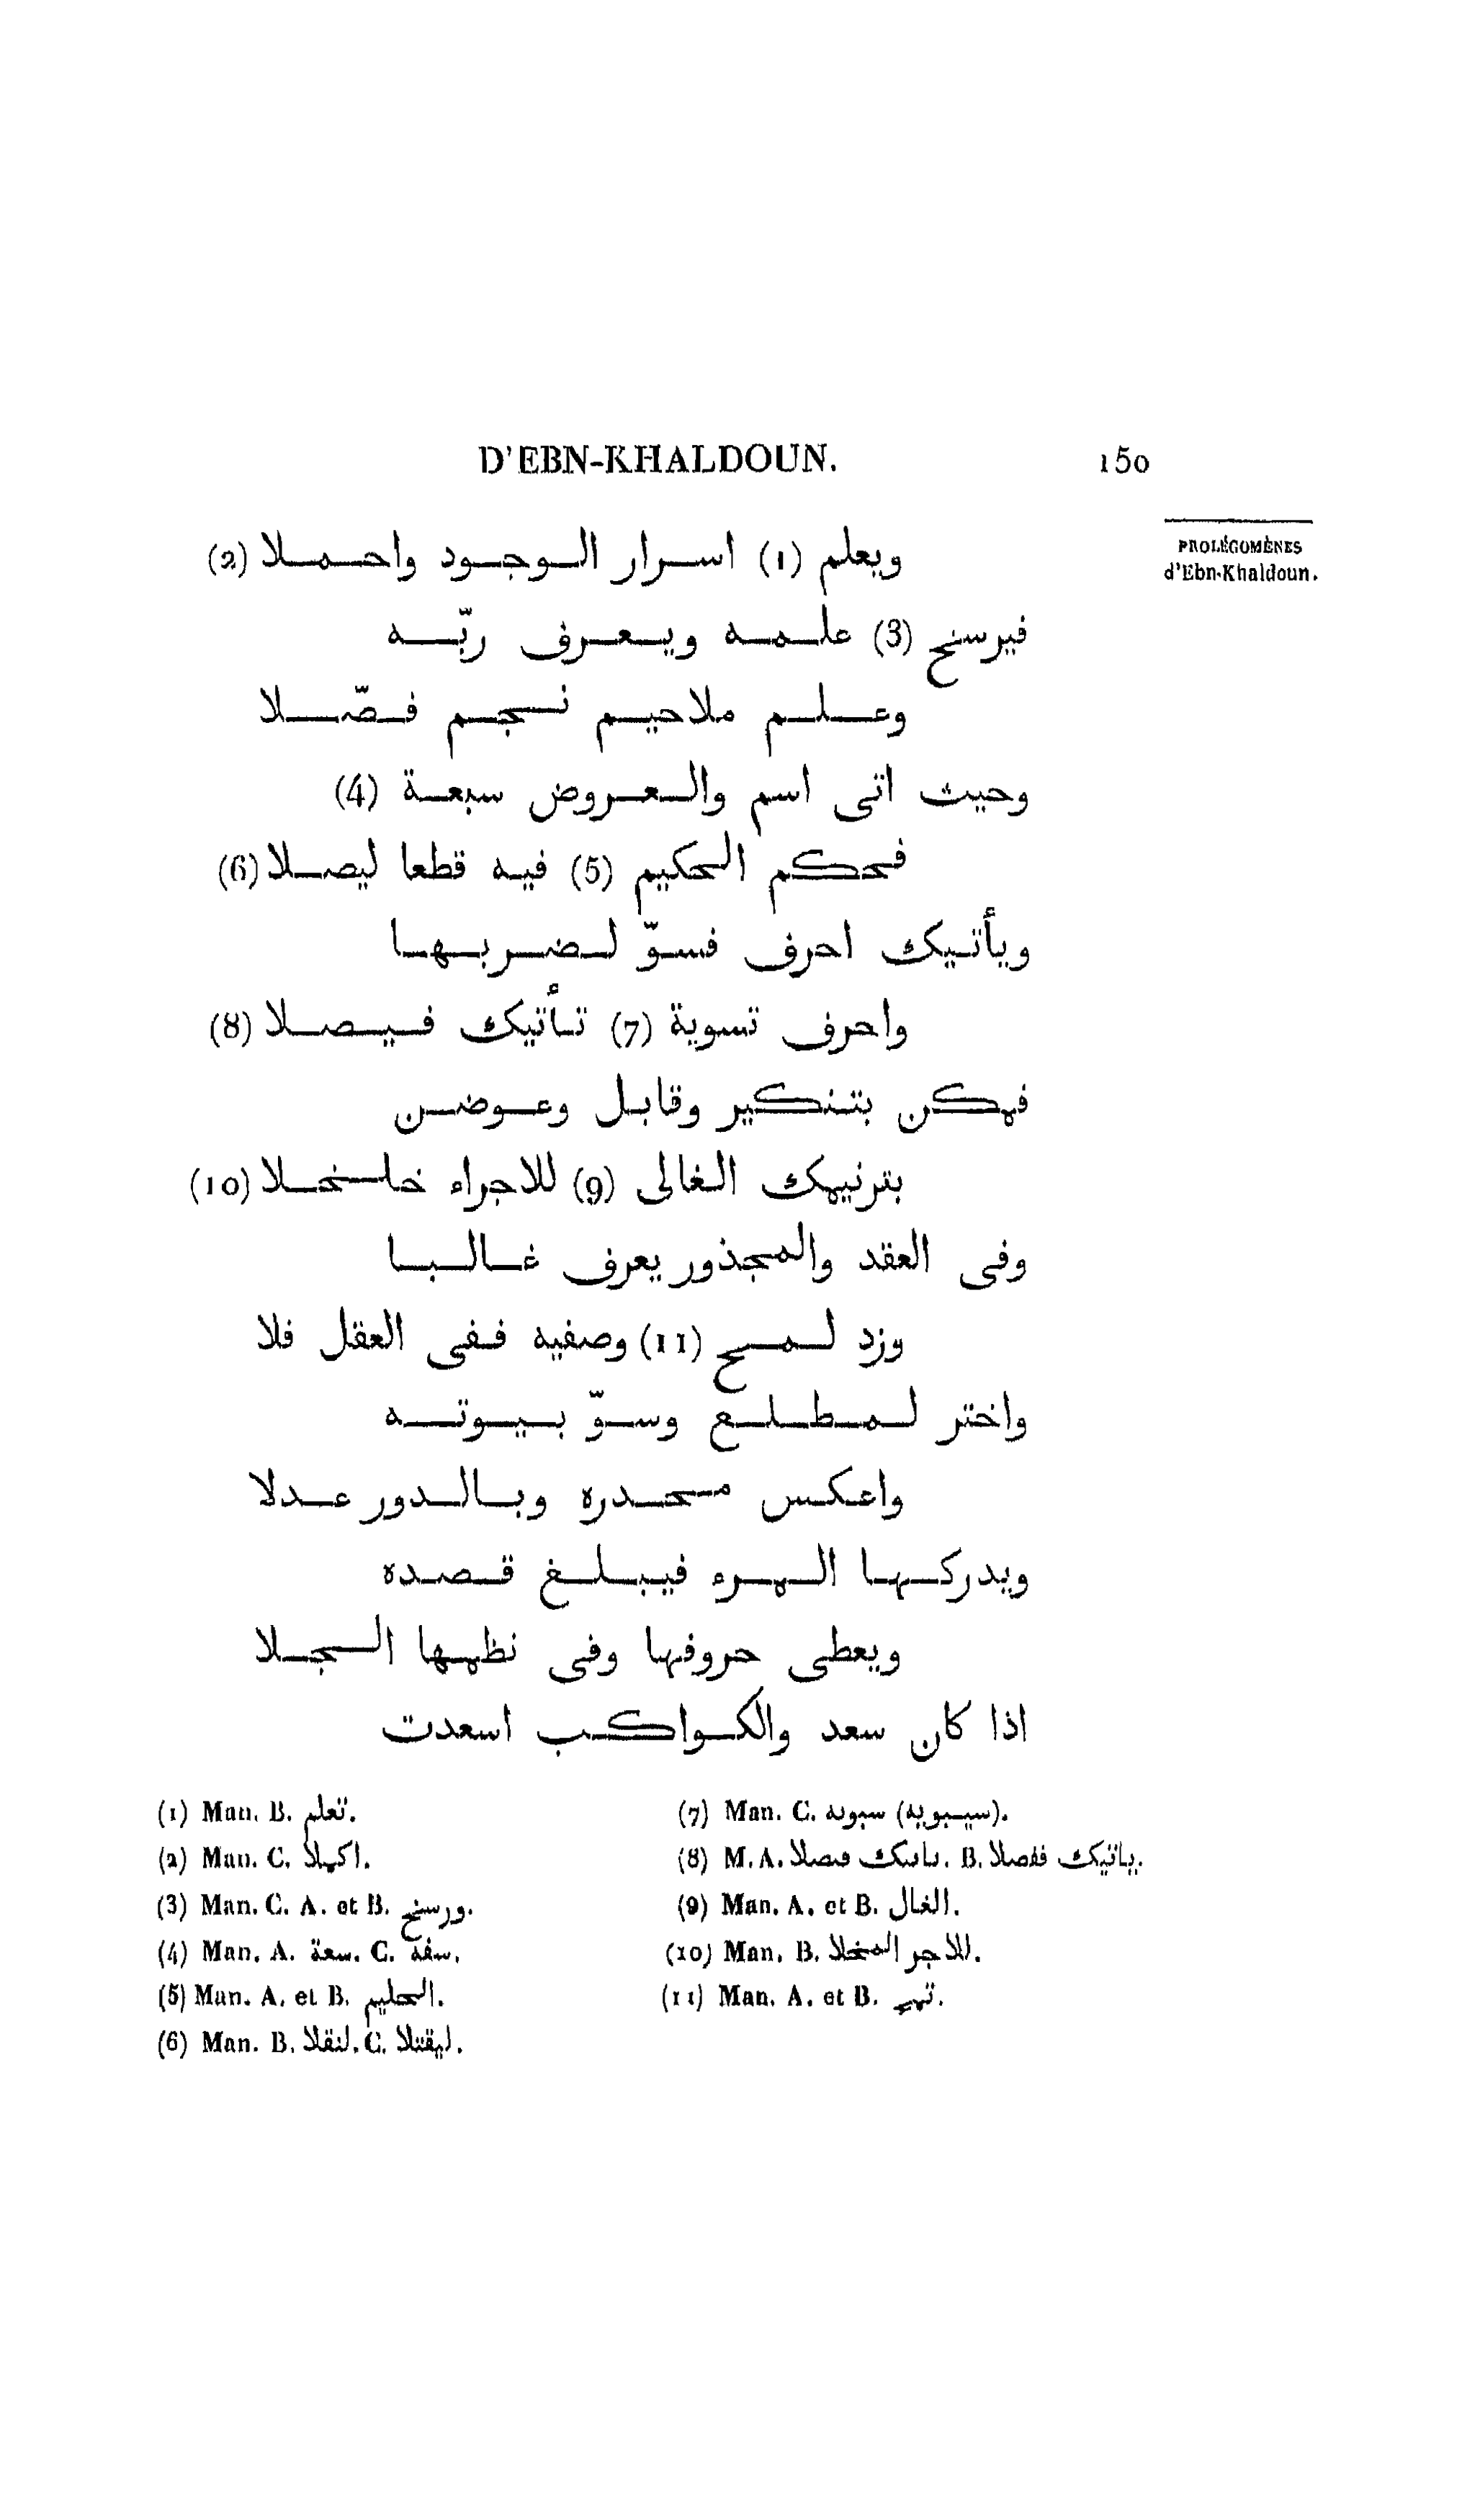 D'EBN-KHALDOUN. 150
PROLÉGOMÈNES
d'Ebn-Khaldoun.
ويعلم (1) اسرار الوجود واحملا (2)
فيرسنح (3) علمه ويعرف ربّه
وعلم ملاحيم نجم فصّلا
وحيث اتى اسم والعروض سبعة (4)
فحكم الحكيم (5) فيه قطعا ليصلا (6)
ويأتيك احرف فسوّ لضربها
واحرف تسوية (7) تأتيك فيصلا (8)
فمكن بتنكير وقابل وعوضن
بترنيمك الغالى (9) للاجراء خلخلا (10)
وفى العقد والمجذور يعرف غالبا
وزد لمح (11) وصفيه ففى العقل فلا
واختر لمطلع وسوّ بيوته
واعكس محدره وبالدور عدلا
ويدركها المرء فيبلغ قصده
ويعطى حروفها وفى نظمها السجلا
اذا كان سعد والكواكب اسعدت
(1) Man. B. تعلم.
(2) Man. C. اكملا.
(3) Man. C. A. et B. ورسنح.
(4) Man. A. سعة. C. سفة.
(5) Man. A. et B. الحليم.
(6) Man. B. لنقلا. C. ليقتلا.
(7) Man. C. سبويه (سيبويه).
(8) M. A. B. ياتيك ففصلا.
(9) Man. A. et B. الغال.
(10) Man. B. للاجر المخلا.
(11) Man. A. et B.